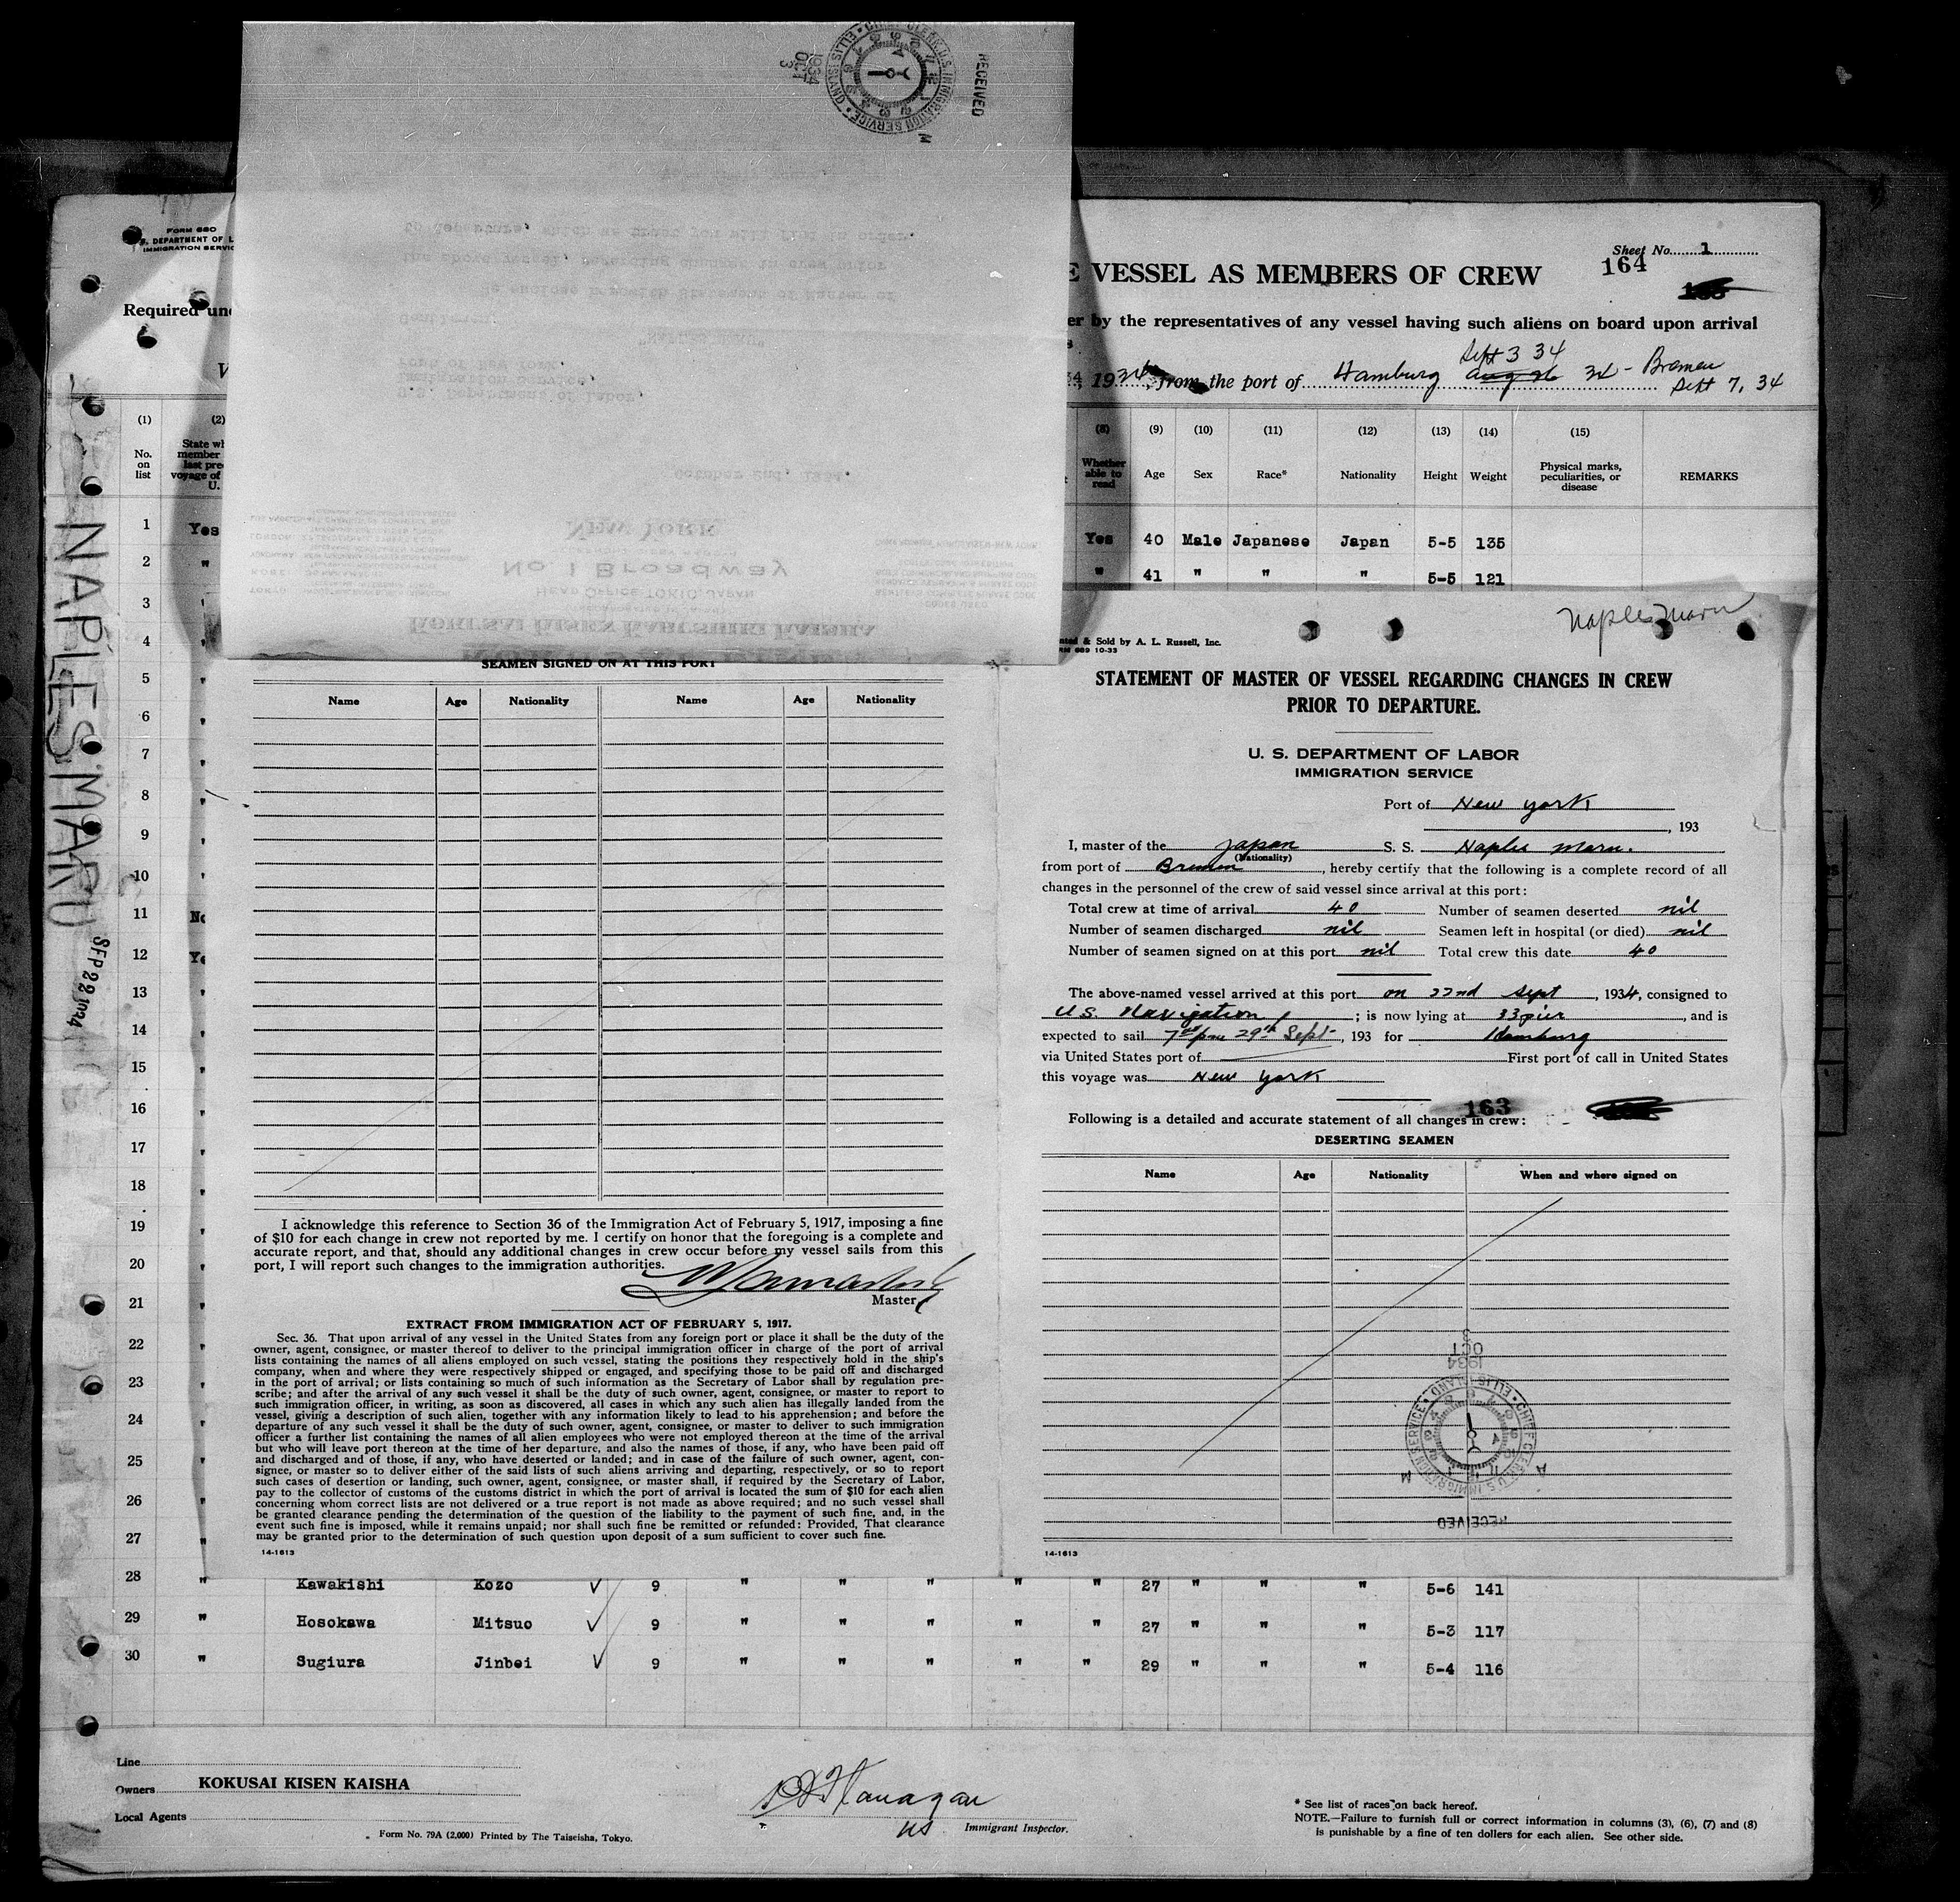 RECEIVED
OCT 3
1934
CHIEF CLERK, U.S. IMMIGRATION SERVICE • ELLIS ISLAND
M
FORM 680
U. S. DEPARTMENT OF L
IMMIGRATION SERVIC
Required und
Sheet No. 1
164
E VESSEL AS MEMBERS OF CREW
er by the representatives of any vessel having such aliens on board upon arrival
Sept 3 34
1934, from the port of Hamburg Aug 26 34 - Bremen
Sept 7, 34
(1) (2) (8) (9) (10) (11) (12) (13) (14) (15)
No. on list
State wh
member
last pre
voyage of
U.
Whether able to read
Age Sex Race* Nationality Height Weight
Physical marks, peculiarities, or disease
REMARKS
1 Yes Yes 40 Male Japanese Japan 5-5 135
2 " " 41 " " " 5-5 121
3
4
5
6
7
8
9
10
11 No
12 Ye
13
14
15
16
17
18
19
20
21
22
23
24
25
26
27
NAPLES MARU
SEP 22 1934
October 2nd, 1934.
U.S. Department of Labor,
Immigration Service,
Port of New York.
"NAPLES MARU"
Gentlemen:
We enclose herewith Statement of Master of
the above vessel, regarding changes in crew prior
to departure, which we trust you will find in order.
KOKUSAI KISEN KABUSHIKI KAISHA
HEAD OFFICE TOKIO JAPAN
No. 1 Broadway
NEW YORK
SEAMEN SIGNED ON AT THIS PORT
Name Age Nationality Name Age Nationality
I acknowledge this reference to Section 36 of the Immigration Act of February 5, 1917, imposing a fine
of $10 for each change in crew not reported by me. I certify on honor that the foregoing is a complete and
accurate report, and that, should any additional changes in crew occur before my vessel sails from this
port, I will report such changes to the immigration authorities.
Master
EXTRACT FROM IMMIGRATION ACT OF FEBRUARY 5, 1917.
Sec. 36. That upon arrival of any vessel in the United States from any foreign port or place it shall be the duty of the
owner, agent, consignee, or master thereof to deliver to the principal immigration officer in charge of the port of arrival
lists containing the names of all aliens employed on such vessel, stating the positions they respectively hold in the ship's
company, when and where they were respectively shipped or engaged, and specifying those to be paid off and discharged
in the port of arrival; or lists containing so much of such information as the Secretary of Labor shall by regulation pre-
scribe; and after the arrival of any such vessel it shall be the duty of such owner, agent, consignee, or master to report to
such immigration officer, in writing, as soon as discovered, all cases in which any such alien has illegally landed from the
vessel, giving a description of such alien, together with any information likely to lead to his apprehension; and before the
departure of any such vessel it shall be the duty of such owner, agent, consignee, or master to deliver to such immigration
officer a further list containing the names of all alien employees who were not employed thereon at the time of the arrival
but who will leave port thereon at the time of her departure, and also the names of those, if any, who have been paid off
and discharged and of those, if any, who have deserted or landed; and in case of the failure of such owner, agent, con-
signee, or master so to deliver either of the said lists of such aliens arriving and departing, respectively, or so to report
such cases of desertion or landing, such owner, agent, consignee, or master shall, if required by the Secretary of Labor,
pay to the collector of customs of the customs district in which the port of arrival is located the sum of $10 for each alien
concerning whom correct lists are not delivered or a true report is not made as above required; and no such vessel shall
be granted clearance pending the determination of the question of the liability to the payment of such fine, and, in the
event such fine is imposed, while it remains unpaid; nor shall such fine be remitted or refunded: Provided, That clearance
may be granted prior to the determination of such question upon deposit of a sum sufficient to cover such fine.
14-1613
Naples Maru
nted & Sold by A. L. Russell, Inc.
RM 689 10-33
STATEMENT OF MASTER OF VESSEL REGARDING CHANGES IN CREW
PRIOR TO DEPARTURE.
U. S. DEPARTMENT OF LABOR
IMMIGRATION SERVICE
Port of New York
, 193
I, master of the Japan S. S. Naples Maru.
(Nationality)
from port of Bremen, hereby certify that the following is a complete record of all
changes in the personnel of the crew of said vessel since arrival at this port:
Total crew at time of arrival 40 Number of seamen deserted nil
Number of seamen discharged nil Seamen left in hospital (or died) nil
Number of seamen signed on at this port nil Total crew this date 40
The above-named vessel arrived at this port on 22nd Sept, 1934, consigned to
U.S. Navigation; is now lying at 33 pier, and is
expected to sail 7 pm 29th Sept, 193 for Hamburg
via United States port of First port of call in United States
this voyage was New York
163
Following is a detailed and accurate statement of all changes in crew:
DESERTING SEAMEN
Name Age Nationality When and where signed on
OCT 3
1934
CHIEF CLERK, U.S. IMMIGRATION SERVICE • ELLIS ISLAND
A M
RECEIVED
14-1613
28 " Kawakishi Kozo ✓ 9 " " " " " 27 " " " 5-6 141
29 " Hosokawa Mitsuo ✓ 9 " " " " " 27 " " " 5-3 117
30 " Sugiura Jinbei ✓ 9 " " " " " 29 " " " 5-4 116
Line
Owners KOKUSAI KISEN KAISHA
Local Agents
Form No. 79A (2,000) Printed by The Taiseisha, Tokyo.
Flanagan
Immigrant Inspector.
* See list of races on back hereof.
NOTE.—Failure to furnish full or correct information in columns (3), (6), (7) and (8)
is punishable by a fine of ten dollars for each alien. See other side.